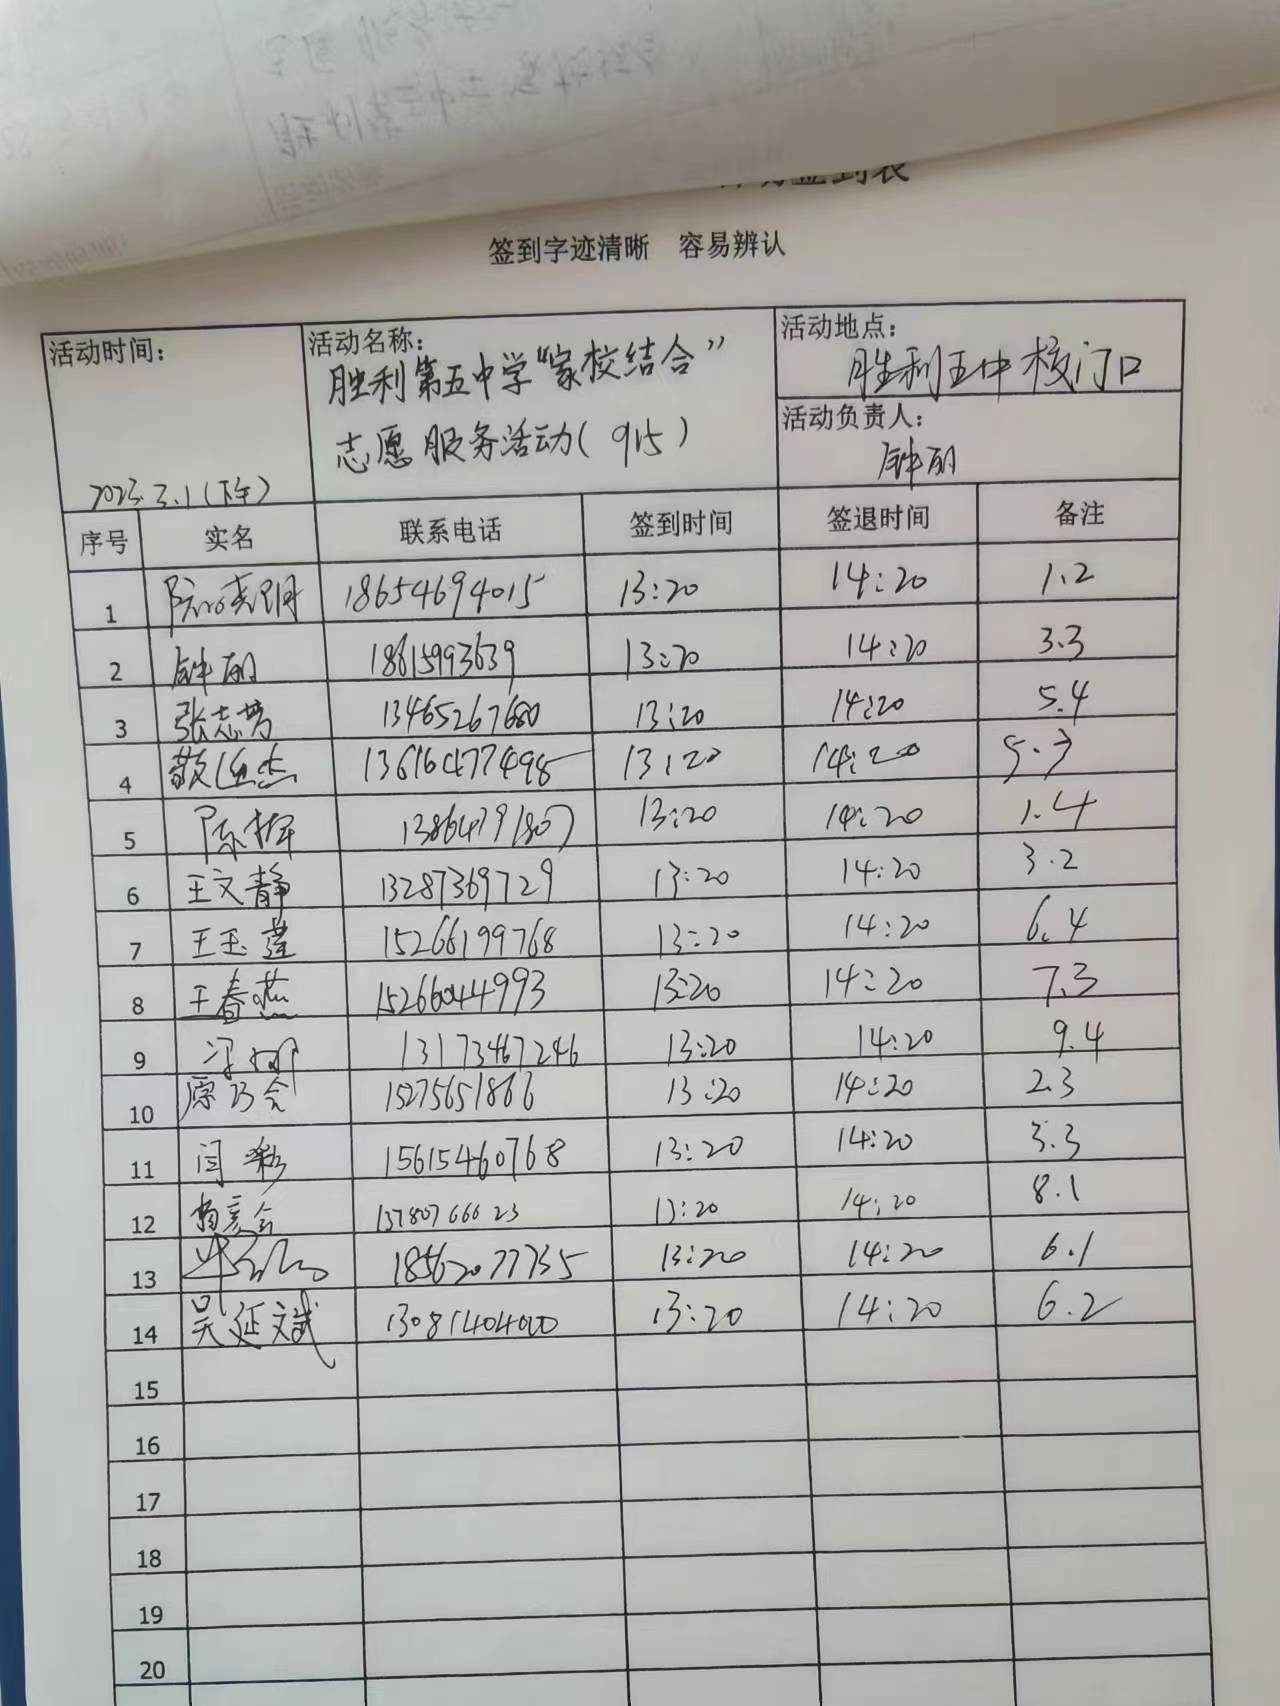 签到表
签到字迹清晰 容易辨认
活动时间：
2023.3.1（下午）
活动名称：
胜利第五中学“家校结合”
志愿服务活动（915）
活动地点：
胜利五中校门口
活动负责人：
钟丽
序号 实名 联系电话 签到时间 签退时间 备注
1 18654694015 13:20 14:20 1.2
2 钟丽 18615993639 13:20 14:20 3.3
3 张志芳 13465267680 13:20 14:20 5.4
4 13616477498 13:20 14:20 5.3
5 陈辉 13864791807 13:20 14:20 1.4
6 王文静 13287369729 13:20 14:20 3.2
7 王玉莲 15266199768 13:20 14:20 6.4
8 王春燕 15266044993 13:20 14:20 7.3
9 13173467246 13:20 14:20 9.4
10 15275651866 13:20 14:20 2.3
11 闫彩 15615460768 13:20 14:20 3.3
12 13780766623 13:20 14:20 8.1
13 18562077735 13:20 14:20 6.1
14 吴延文斌 13081404000 13:20 14:20 6.2
15
16
17
18
19
20